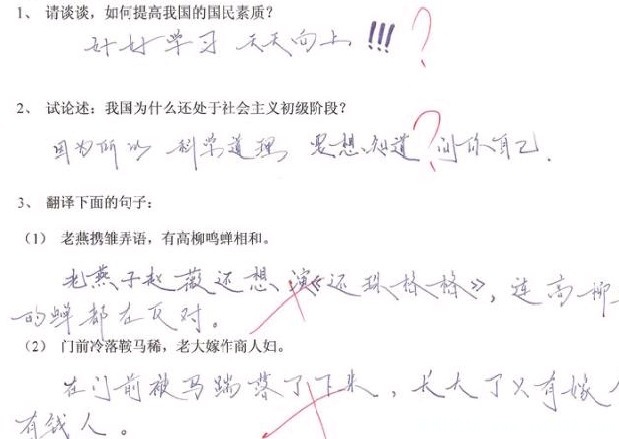 1、 请谈谈，如何提高我国的国民素质？
好好学习 天天向上 !!! ?
2、 试论述：我国为什么还处于社会主义初级阶段？
因为所以 科学道理 要想知道 ? 问你自己.
3、 翻译下面的句子：
（1） 老燕携雏弄语，有高柳鸣蝉相和。
老燕子赵薇还想演《还珠格格》，连高柳上
的蝉都在反对。
（2） 门前冷落鞍马稀，老大嫁作商人妇。
在门前被马踹落了下来，长大了又有嫁个
有钱人。